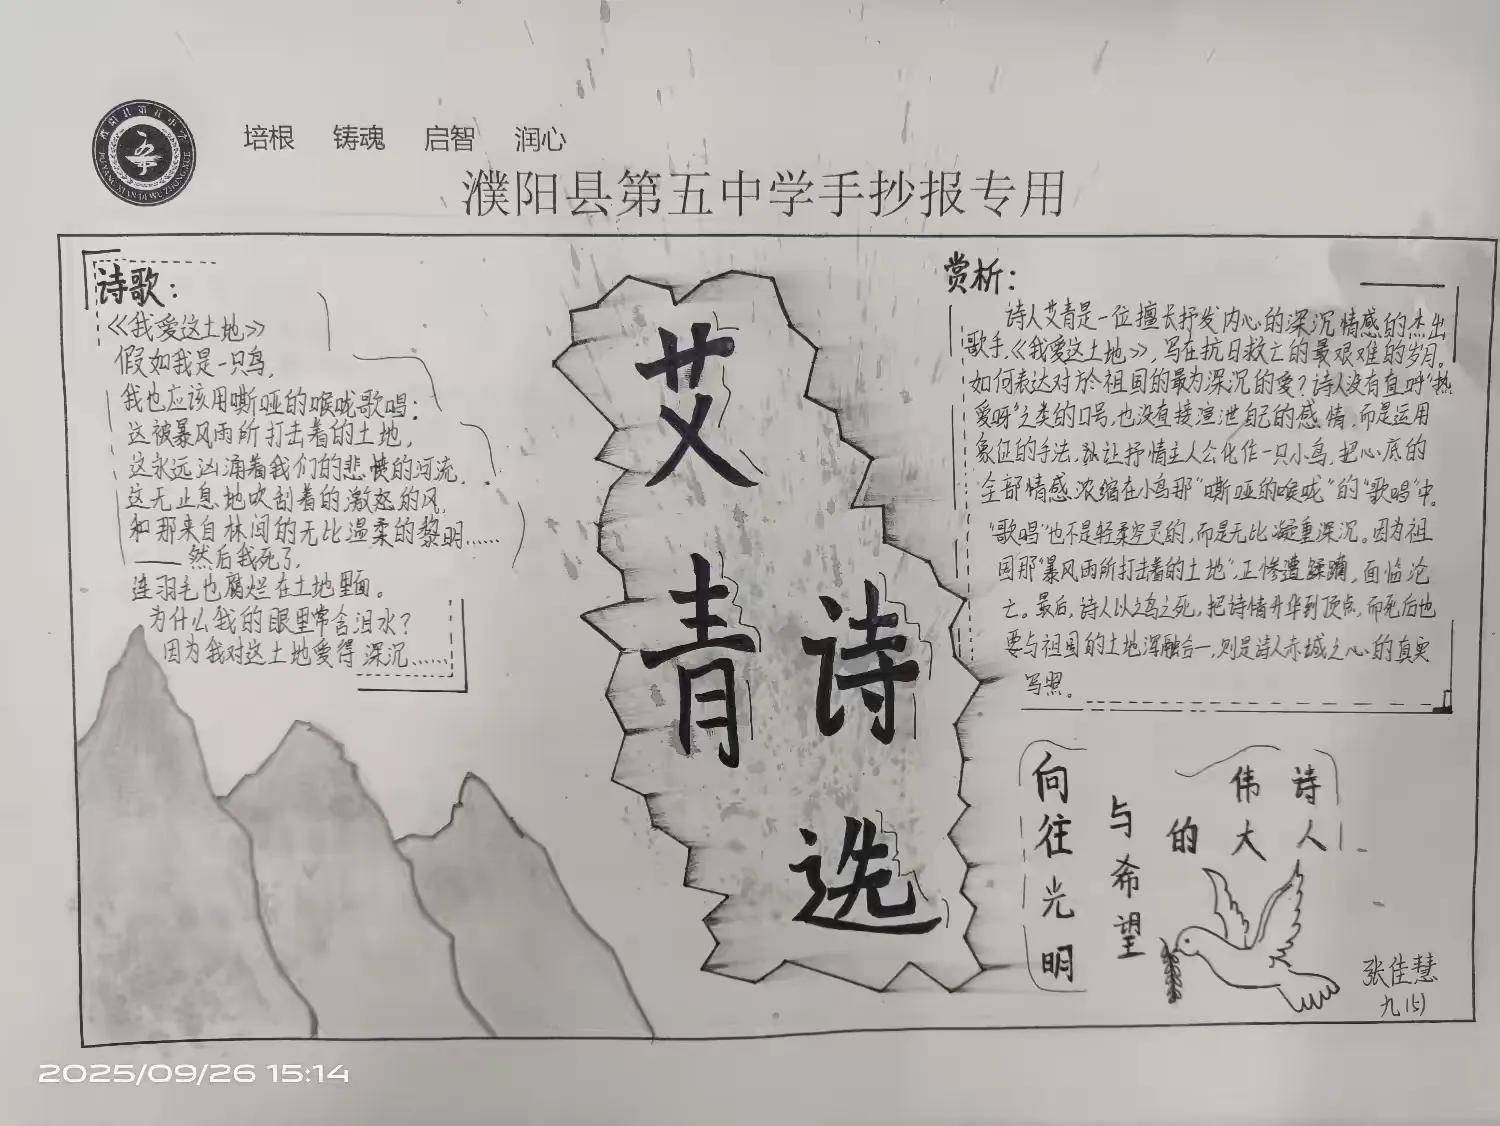 濮阳县第五中学
PUYANG XIAN DI WU ZHONG XUE
培根 铸魂 启智 润心
濮阳县第五中学手抄报专用
诗歌：
《我爱这土地》
假如我是一只鸟，
我也应该用嘶哑的喉咙歌唱：
这被暴风雨所打击着的土地，
这永远汹涌着我们的悲愤的河流，
这无止息地吹刮着的激怒的风，
和那来自林间的无比温柔的黎明……
——然后我死了，
连羽毛也腐烂在土地里面。
为什么我的眼里常含泪水？
因为我对这土地爱得深沉……
艾青
诗选
赏析：
诗人艾青是一位擅长抒发内心的深沉情感的杰出
歌手，《我爱这土地》，写在抗日救亡的最艰难的岁月。
如何表达对於祖国的最为深沉的爱？诗人没有直呼"热
爱呀"之类的口号，也没直接渲泄自己的感情，而是运用
象征的手法，让抒情主人公化作一只小鸟，把心底的
全部情感浓缩在小鸟那"嘶哑的喉咙"的"歌唱"中。
"歌唱"也不是轻柔空灵的，而是无比凝重深沉。因为祖
国那"暴风雨所打击着的土地"，正惨遭蹂躏，面临沦
亡。最后，诗人以之鸟之死，把诗情升华到顶点，而死后也
要与祖国的土地浑融合一，则是诗人赤城之心的真实
写照。
诗人
伟大
的
与希望
向往光明
张佳慧
九(5)
2025/09/26 15:14